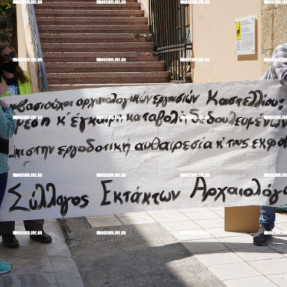 βασιούχοι αρχαιολογικών εργασιών Καστελλίου:
μεση κ' έγκαιρη καταβολή δεδουλευμένων
στην εργοδοτική αυθαιρεσία κ' της εκφοβ
Σύλλογος Εκτάκτων Αρχαιολόγω